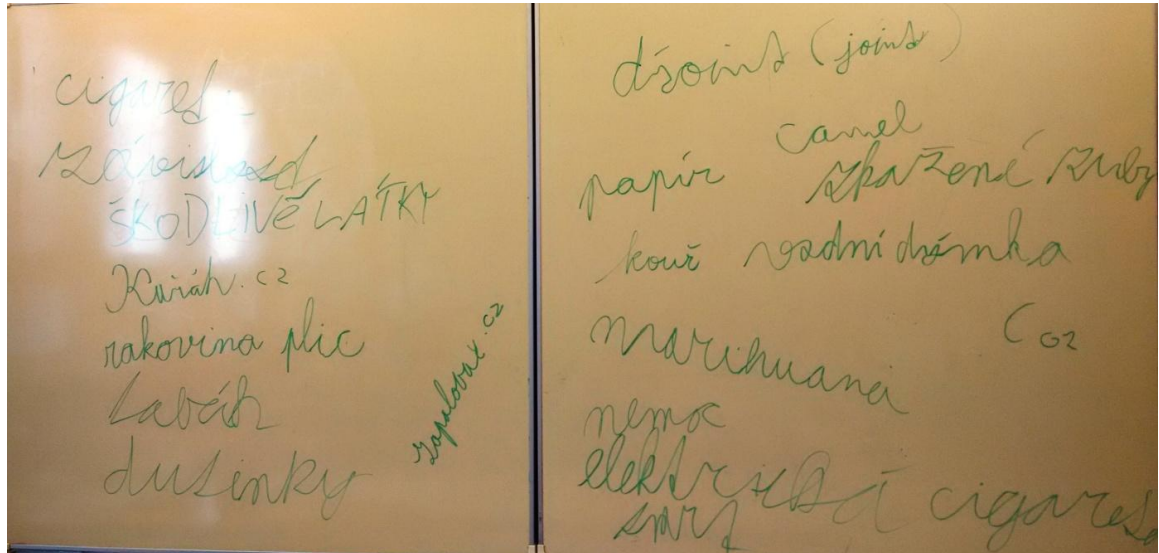 cigaret
závislost
ŠKODLIVÉ LÁTKY
Kuřák.cz
rakovina plic
tabák
dutinky
zapalovač.cz
džoint (joint)
camel
papír zkažené zuby
kouř vodní dýmka
marihuana
C cz
nemoc
elektrická cigareta
smrt